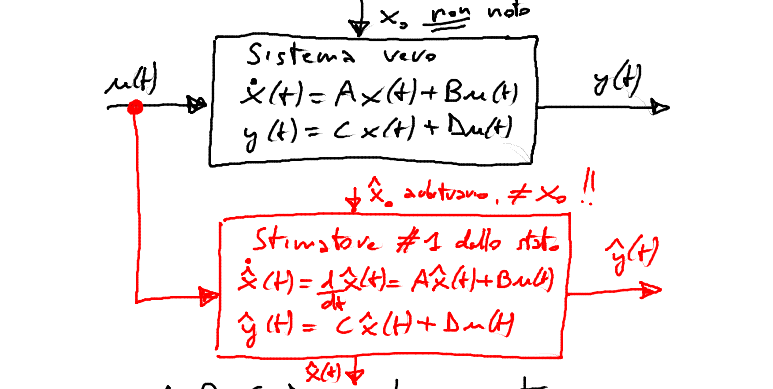 x₀ non noto
Sistema vero
u(t)
ẋ(t) = A x(t) + Bu(t)
y(t)
y(t) = C x(t) + Du(t)
x̂₀ arbitrario, ≠ x₀ !!
Stimatore #1 dello stato
ŷ(t)
x̂̇(t) = d/dt x̂(t) = Ax̂(t) + Bu(t)
ŷ(t) = C x̂(t) + Du(t)
x̂(t)